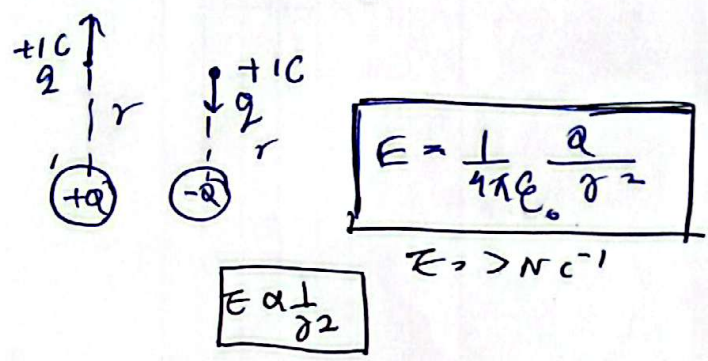 +1C
q
r
+Q
+1C
q
r
-Q
E = 1/4πε₀ Q/r²
E => N C⁻¹
E α 1/r²